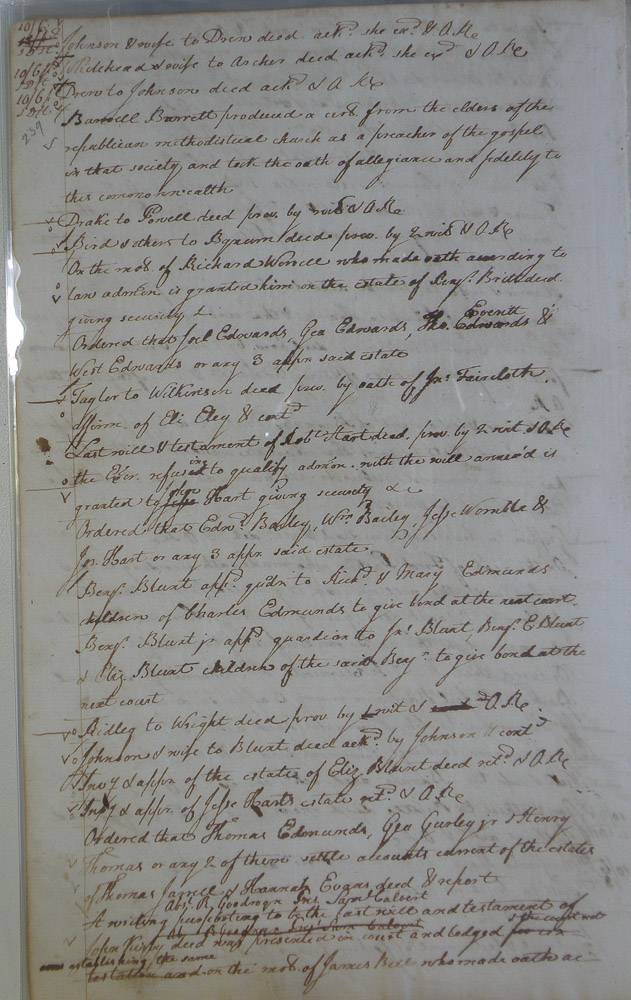 10/6
Johnson & wife to Drew deed ackd. she exd. & O. Re
10/6 Whitehead & wife to Archer deed ackd. she exd & O Re
10/6 Drew to Johnson deed ackd & O Re
239 Barrett produced a cert. from the elders of the
republican methodistical church as a preacher of the gospel
in that society and took the oath of allegiance and fidelity to
this commonwealth
Drake to Powell deed prov. by wit & O. Re
Bird & others to deed prov. by 2 wits & O. Re
On the mo. of Richard Worrell who made oath according to
law admon is granted him on the estate of Benj. deed.
giving security &
Everett
Ordered that Joel Edwards, Geo Edwards, Tho. Edwards &
West Edwards or any 3 appr. said estate
Taylor to Wilkinson deed prov. by oath of Jns. Faircloth,
affirm. of Eli Eley & contd
Last will & testament of Robt. Hart deed. prov. by 2 wit & O Re
ing
the Exer. refus to qualify admon. with the will annex'd is
John
granted to Jesse Hart giving security &c
Ordered that Edwd. Bailey, Wm. Bailey, Jesse Womble &
Jos. Hart or any 3 appr. said estate.
Benj. Blunt appd. gudn to Richd. & Mary Edmunds
children of Charles Edmunds to give bond at the next court.
Benj. Blunt jr appd. guardian to Jn. Blunt, Benj. E. Blunt
& Eliz Blunt children of the said Benjn. to give bond at the
next court
Ridley to Wright deed prov by wit & O. Re.
Johnson & wife to Blunt deed ackd. by Johnson & contd
Invy & appr. of the estate of Eliz Blunt deed retd. & O Re
Invy & appr. of Jesse Harts estate retd. & O. Re
Ordered that Thomas Edmunds, Geo Gurley jr & Henry
Thomas or any 2 of them settle accounts current of the estates
of Thomas Jarrell & Hannah Evans deed & report
Jns. Saml Calvert
A writing purporting to be the last will and testament of
& the court not
John Kirby deed was presented in court and lodged
establishing the same
on the mo. of James who made oath ac-